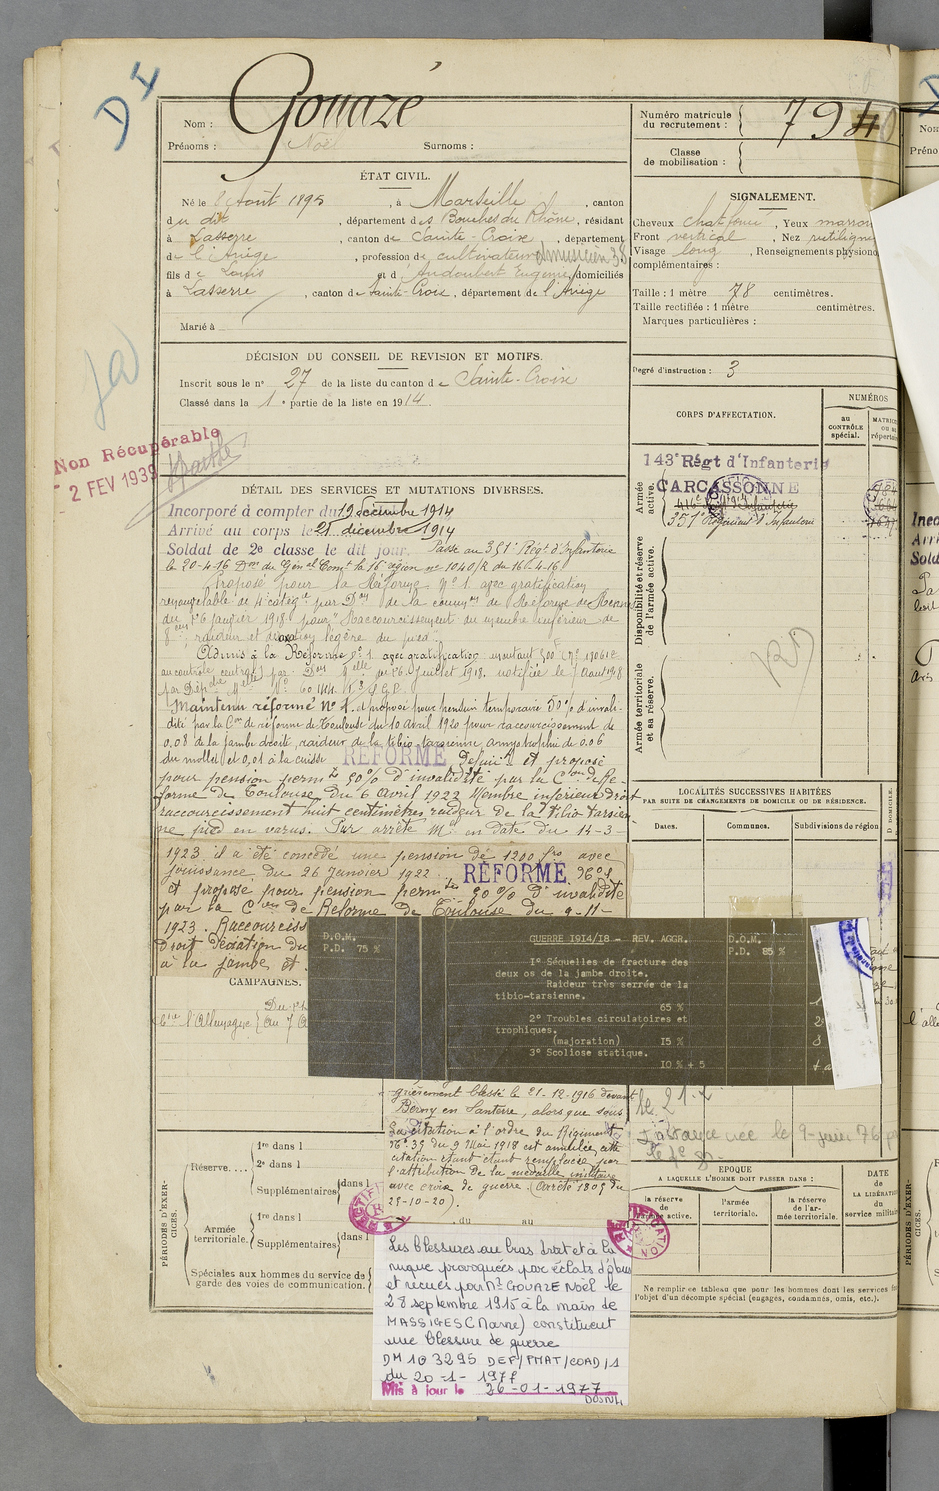 D I
Nom : Gouazé
Prénoms : Noël Surnoms :
Numéro matricule du recrutement : 794
Classe de mobilisation :
ÉTAT CIVIL.
Né le 8 Août 1895, à Marseille, canton
du dit, département des Bouches du Rhône, résidant
à Lasserre, canton de Sainte-Croix, département
de l'Ariège, profession de cultivateur et musicien 38
fils de Louis et d'Audoubert Eugénie, domiciliés
à Lasserre, canton de Sainte-Croix, département de l'Ariège
Marié à
SIGNALEMENT.
Cheveux chat foncé, Yeux marron
Front vertical, Nez rectiligne
Visage long, Renseignements physiono
complémentaires :
Taille : 1 mètre 78 centimètres.
Taille rectifiée : 1 mètre centimètres.
Marques particulières :
Degré d'instruction : 3
DÉCISION DU CONSEIL DE REVISION ET MOTIFS.
Inscrit sous le n° 27 de la liste du canton de Sainte-Croix
Classé dans la 1e partie de la liste en 1914.
Non Récupérable
2 FEV 1939
CORPS D'AFFECTATION.
NUMÉROS
au CONTRÔLE spécial.
MATRIC
OU au
répertoi
Armée active.
143e Régt d'Infanterie
CARCASSONNE
416e Régt d'Infanterie
351e Régiment d'Infanterie
Disponibilité et réserve de l'armée active.
Armée territoriale et sa réserve.
DÉTAIL DES SERVICES ET MUTATIONS DIVERSES.
Incorporé à compter du 19 décembre 1914
Arrivé au corps le 21 décembre 1914
Soldat de 2e classe le dit jour. Passé au 351e Régt d'Infanterie
le 20-4-16 Don du Génal Comt la 16e région n° 1040/R du 16-4-16
Proposé pour la Réforme N° 1 avec gratification
renouvelable de 4e catégie par Don de la common de Réforme de Rennes
du 26 janvier 1918 pour "Raccourcissement du membre inférieur de
8 cms, raideur et déviation légère du pied".
Admis à la Réforme N° 1 avec gratification
Maintenu réformé N° 1. et proposé pour pension temporaire 50% d'invali-
dité par la Con de réforme de Toulouse du 10 avril 1920 pour raccourcissement de
0.08 de la jambe droite, raideur de la tibio tarsienne, amyotrophie de 0.06
du mollet et 0,01 à la cuisse
RÉFORMÉ Définif et proposé
pour pension permte 50% d'invalidité par la Con de Ré-
forme de Toulouse du 6 Avril 1922 Membre inférieur droit
raccourcissement huit centimètres raideur de la tibio-tarsien-
ne, pied en varus. Par arrêté Mel en date du 14-3-
1923 il a été concédé une pension de 1200 frs avec
jouissance du 26 Janvier 1922.
RÉFORMÉ
et proposé pour pension permte 50% d'invalidité
par la Con de Réforme de Toulouse du 9-11-
1923. Raccourciss
Droit Déviation du
à la jambe et
D.O.M.
P.D. 75 %
GUERRE 1914/18 - REV. AGGR.
I° Séquelles de fracture des
deux os de la jambe droite.
Raideur très serrée de la
tibio-tarsienne.
65 %
2° Troubles circulatoires et
trophiques.
(majoration) I5 %
3° Scoliose statique.
IO % + 5
D.O.M.
P.D. 85 %
LOCALITÉS SUCCESSIVES HABITÉES
PAR SUITE DE CHANGEMENTS DE DOMICILE OU DE RÉSIDENCE.
Dates. Communes. Subdivisions de région
D DOMICILE.
CAMPAGNES.
Ctre l'Allemagne
grièvement blessé le 21-12-1916 devant
Berny en Santerre, alors que sous
La citation à l'ordre du Régiment
N° 39 du 9 Mai 1918 est annulée, cette
citation étant remplacée par
l'attribution de la médaille militaire
avec croix de guerre. (Arrêté 1805 du
25-10-20).
PÉRIODES D'EXERCICES.
Réserve....
1re dans l
2e dans l
Supplémentaires dans l
Armée territoriale.
1re dans l
Supplémentaires dans l
, du au
Spéciales aux hommes du service de
garde des voies de communication.
EPOQUE
A LAQUELLE L'HOMME DOIT PASSER DANS :
la réserve de l'armée active.
l'armée territoriale.
la réserve de l'ar- mée territoriale.
DATE
de
LA LIBÉRATION
du
service militaire
Ne remplir ce tableau que pour les hommes dont les services f
l'objet d'un décompte spécial (engagés, condamnés, omis, etc.).
RECTIFICATION
Les blessures au bras droit et à la
nuque provoquées par éclats d'obus
et reçues par Mr GOUAZE Noël le
28 septembre 1915 à la main de
MASSIGES (Marne) constituent
une blessure de guerre
DM 103295 DEF/PMAT/COAD/1
du 20-1-1977
Mis à jour le 26-01-1977